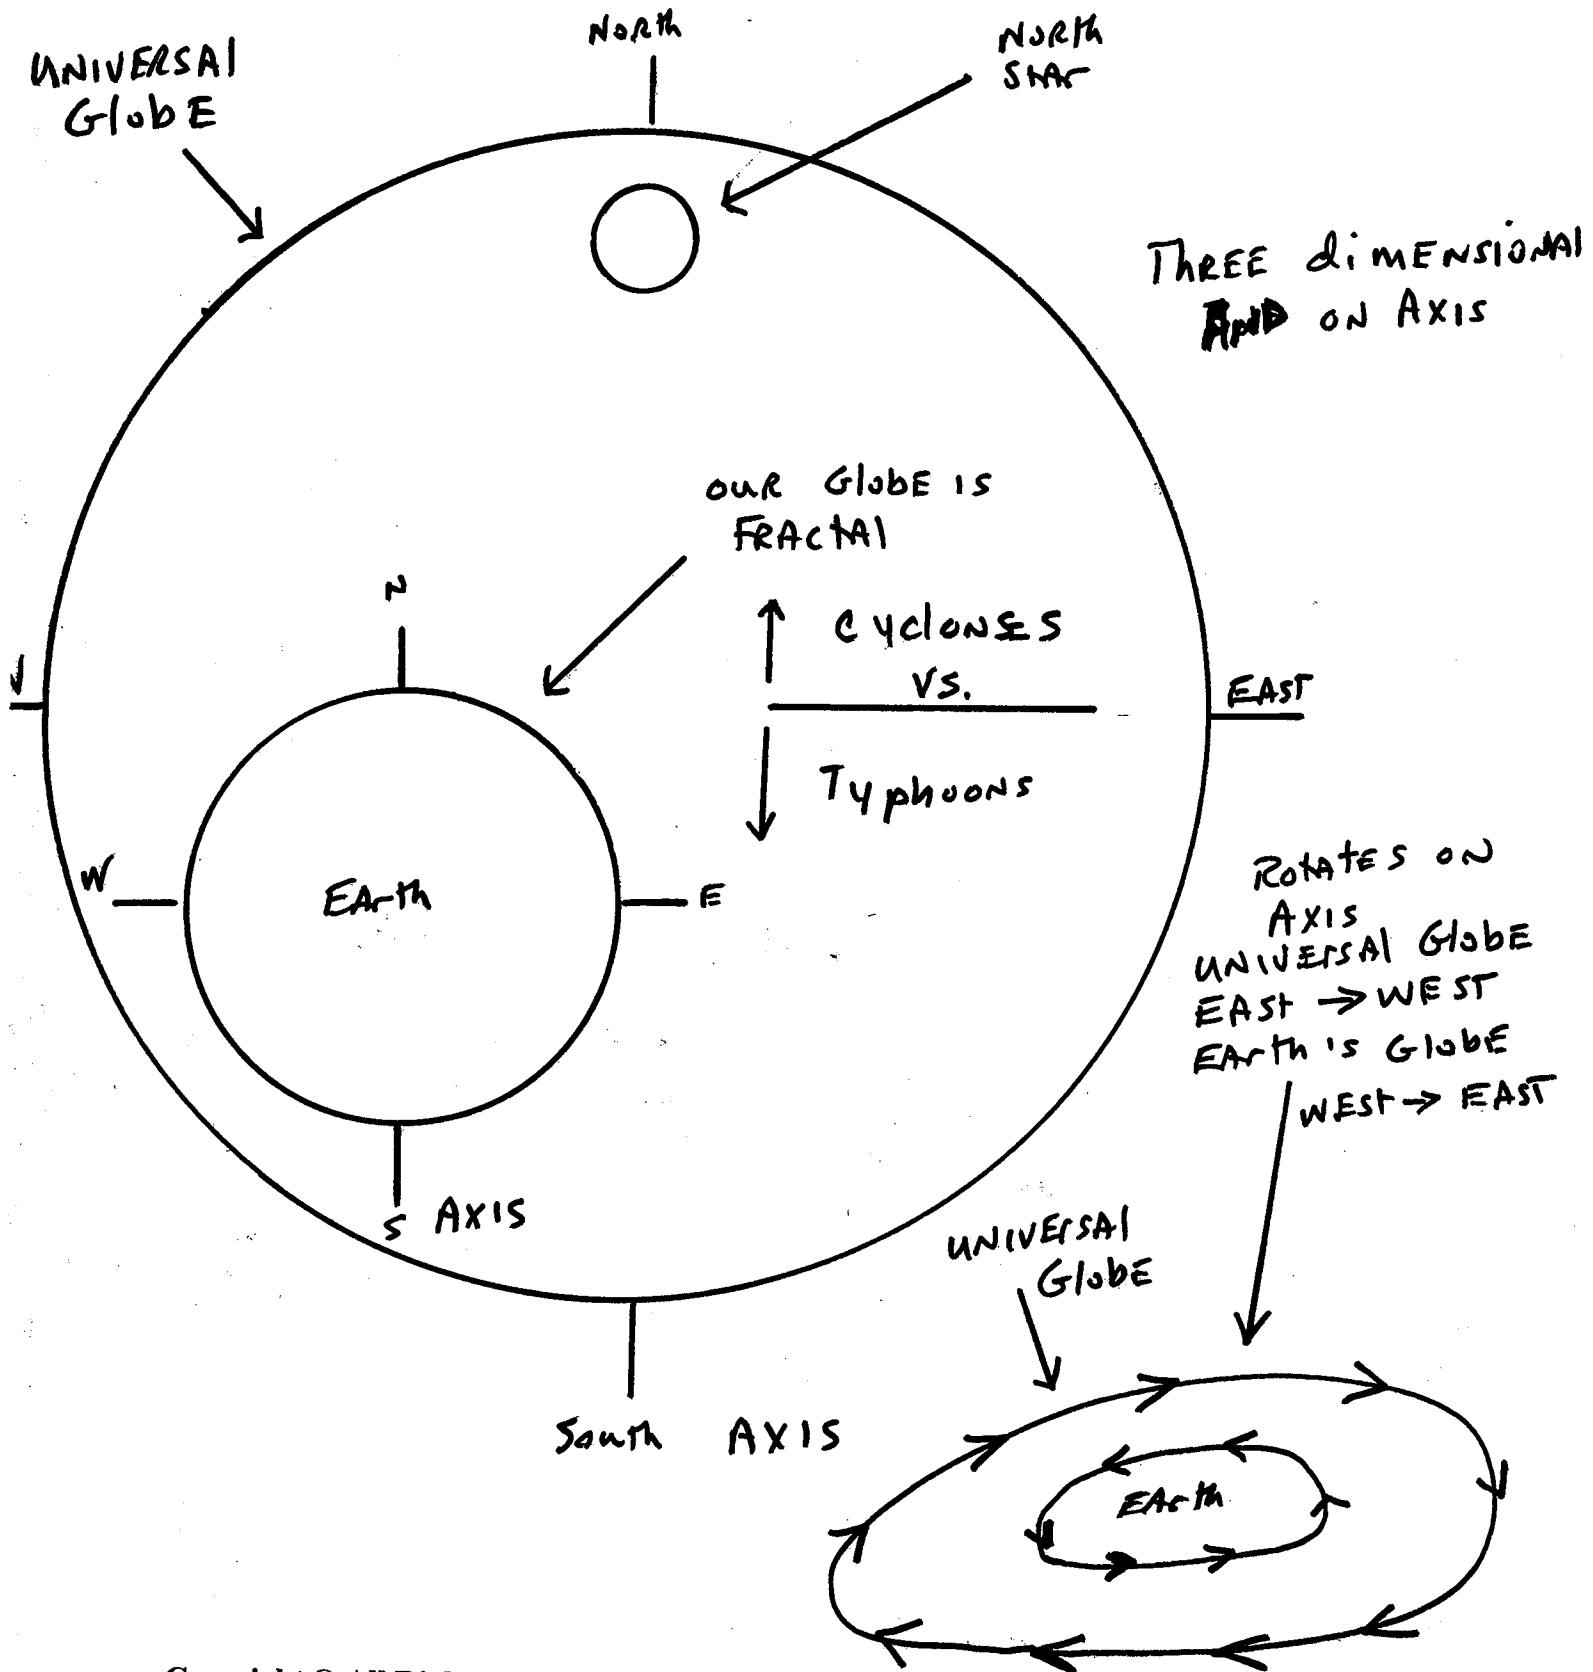 UNIVERSAL
GlobE
NORth
NORth
StAr
ThREE diMENSIONAl
AND ON AXIS
OUR GlobE IS
FRActAl
N
CYClONES
VS.
TyphooNS
EAST
W
EArth
E
S AXIS
RotAtES ON
AXIS
UNIVErSAl GlobE
EASt → WEST
EArth's GlobE
WESt → EAST
UNIVErSAl
GlobE
South AXIS
EArth